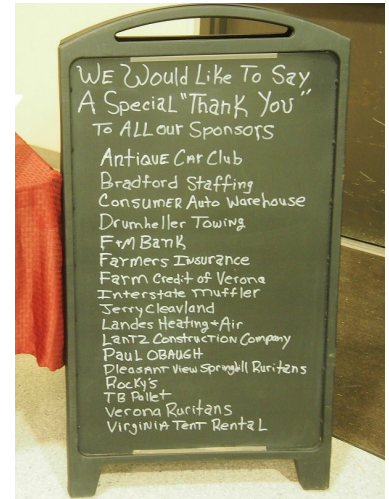 WE Would Like To Say
A Special "Thank You"
To ALL our Sponsors
Antique Car Club
Bradford Staffing
Consumer Auto Warehouse
Drumheller Towing
F+M Bank
Farmers Insurance
Farm Credit of Verona
Interstate Muffler
Jerry Cleavland
Landes Heating + Air
Lantz Construction Company
PAUL OBAUGH
Pleasant View Springhill Ruritans
Rocky's
TB Pallet
Verona Ruritans
Virginia Tent Rental